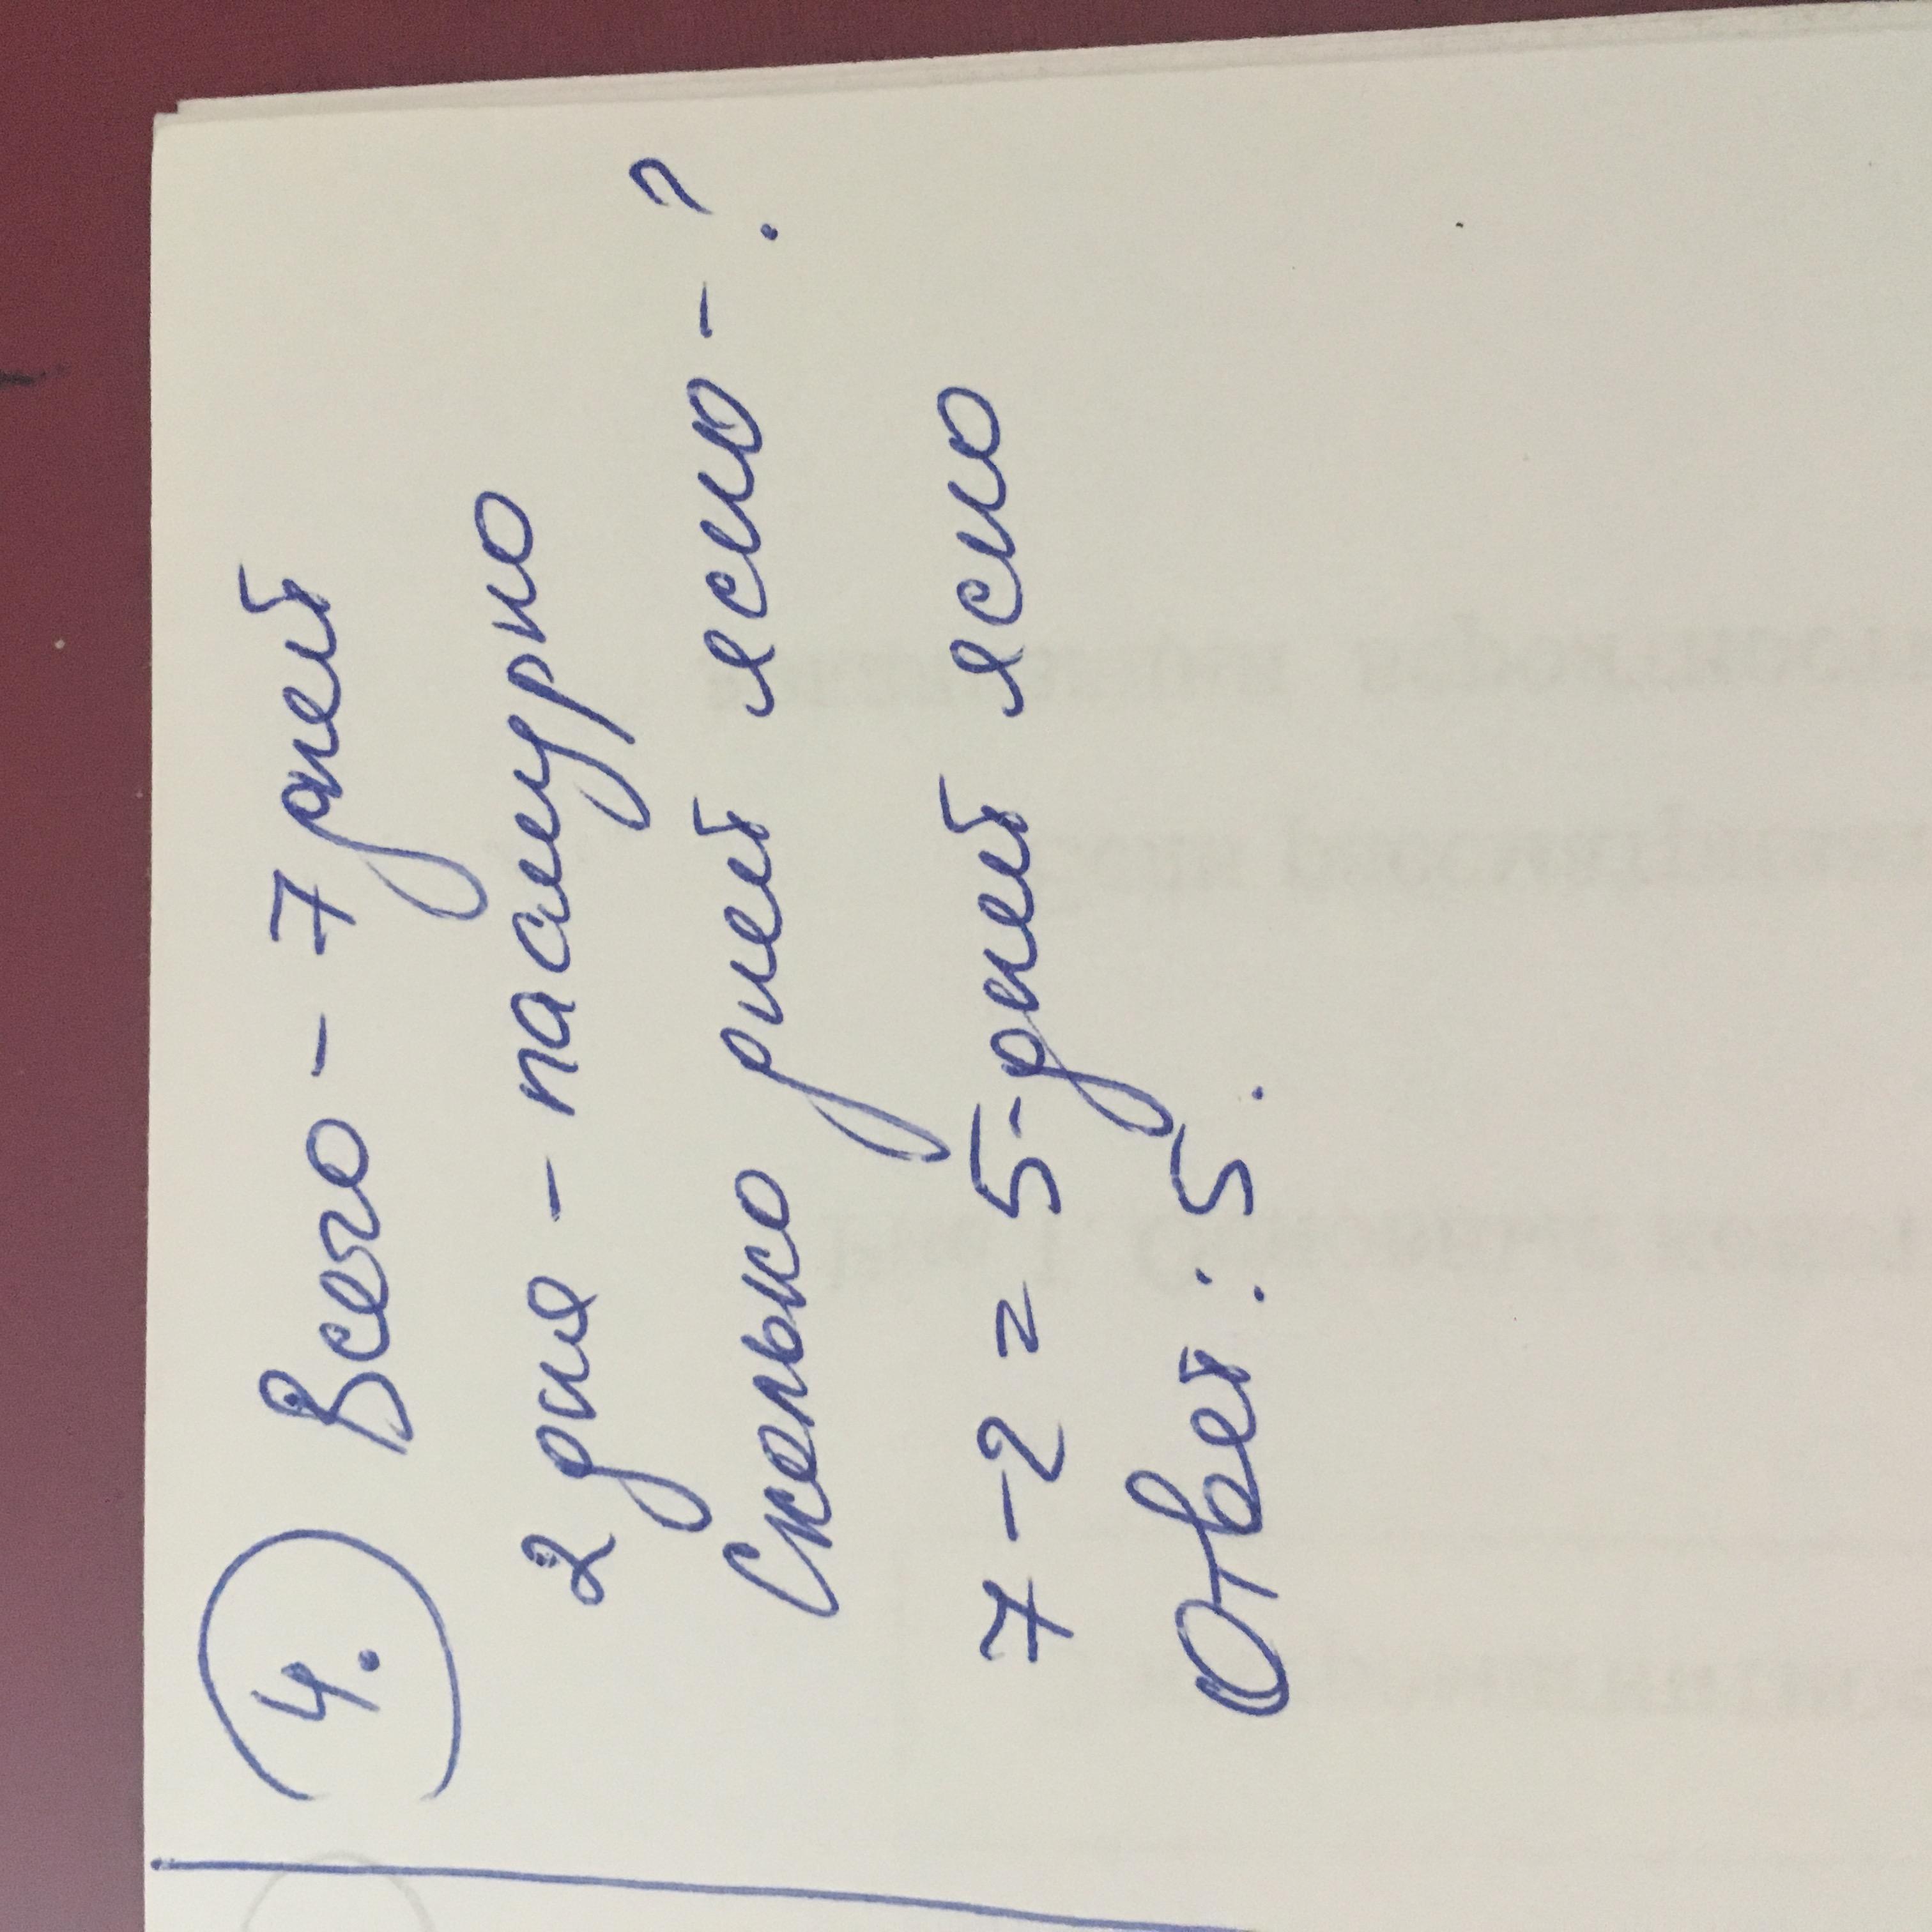 4. Всего - 7 дней
2 дня - пасмурно
Сколько дней ясно - ?
7 - 2 = 5 - дней ясно
Ответ: 5.